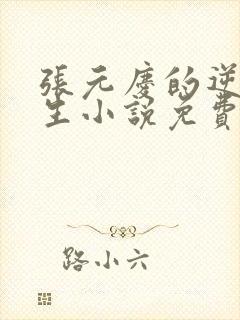 張元慶的逆
生小說免費
路小六